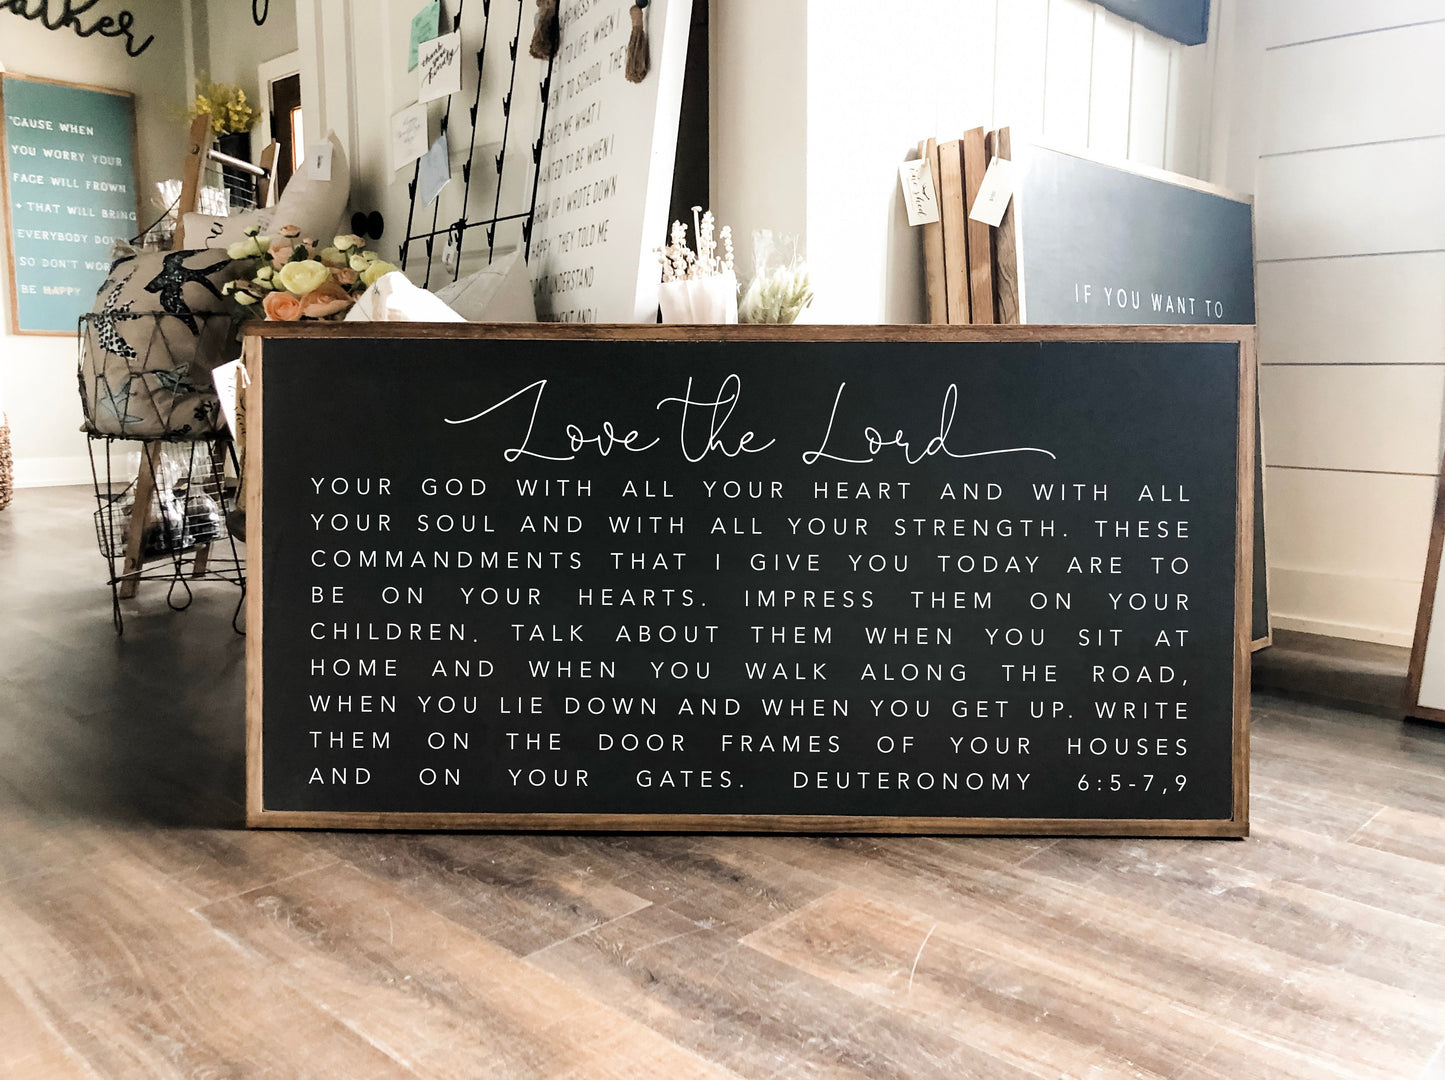 'CAUSE WHEN
YOU WORRY YOUR
FACE WILL FROWN
+ THAT WILL BRING
EVERYBODY
SO DON'T
BE HAPPY
thank you kindly
TO LIFE. WHEN I
TO SCHOOL THEY
ASKED ME WHAT I
WANTED TO BE WHEN I
UP I WROTE DOWN
HAPPY. THEY TOLD ME
UNDERSTAND
IF YOU WANT TO
Love the Lord
YOUR GOD WITH ALL YOUR HEART AND WITH ALL
YOUR SOUL AND WITH ALL YOUR STRENGTH. THESE
COMMANDMENTS THAT I GIVE YOU TODAY ARE TO
BE ON YOUR HEARTS. IMPRESS THEM ON YOUR
CHILDREN. TALK ABOUT THEM WHEN YOU SIT AT
HOME AND WHEN YOU WALK ALONG THE ROAD,
WHEN YOU LIE DOWN AND WHEN YOU GET UP. WRITE
THEM ON THE DOOR FRAMES OF YOUR HOUSES
AND ON YOUR GATES. DEUTERONOMY 6:5-7,9